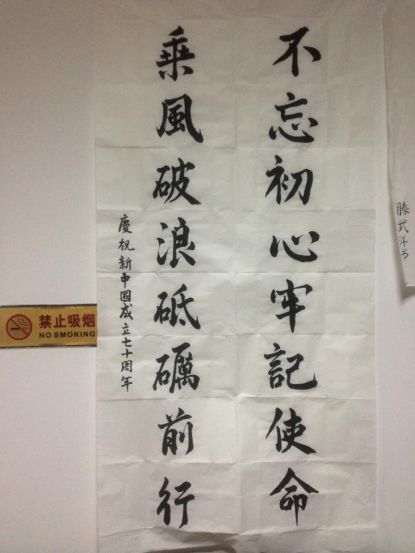 不忘初心牢記使命
乘風破浪砥礪前行
慶祝新中国成立七十周年
禁止吸烟
NO SMOKING
滕武洋书